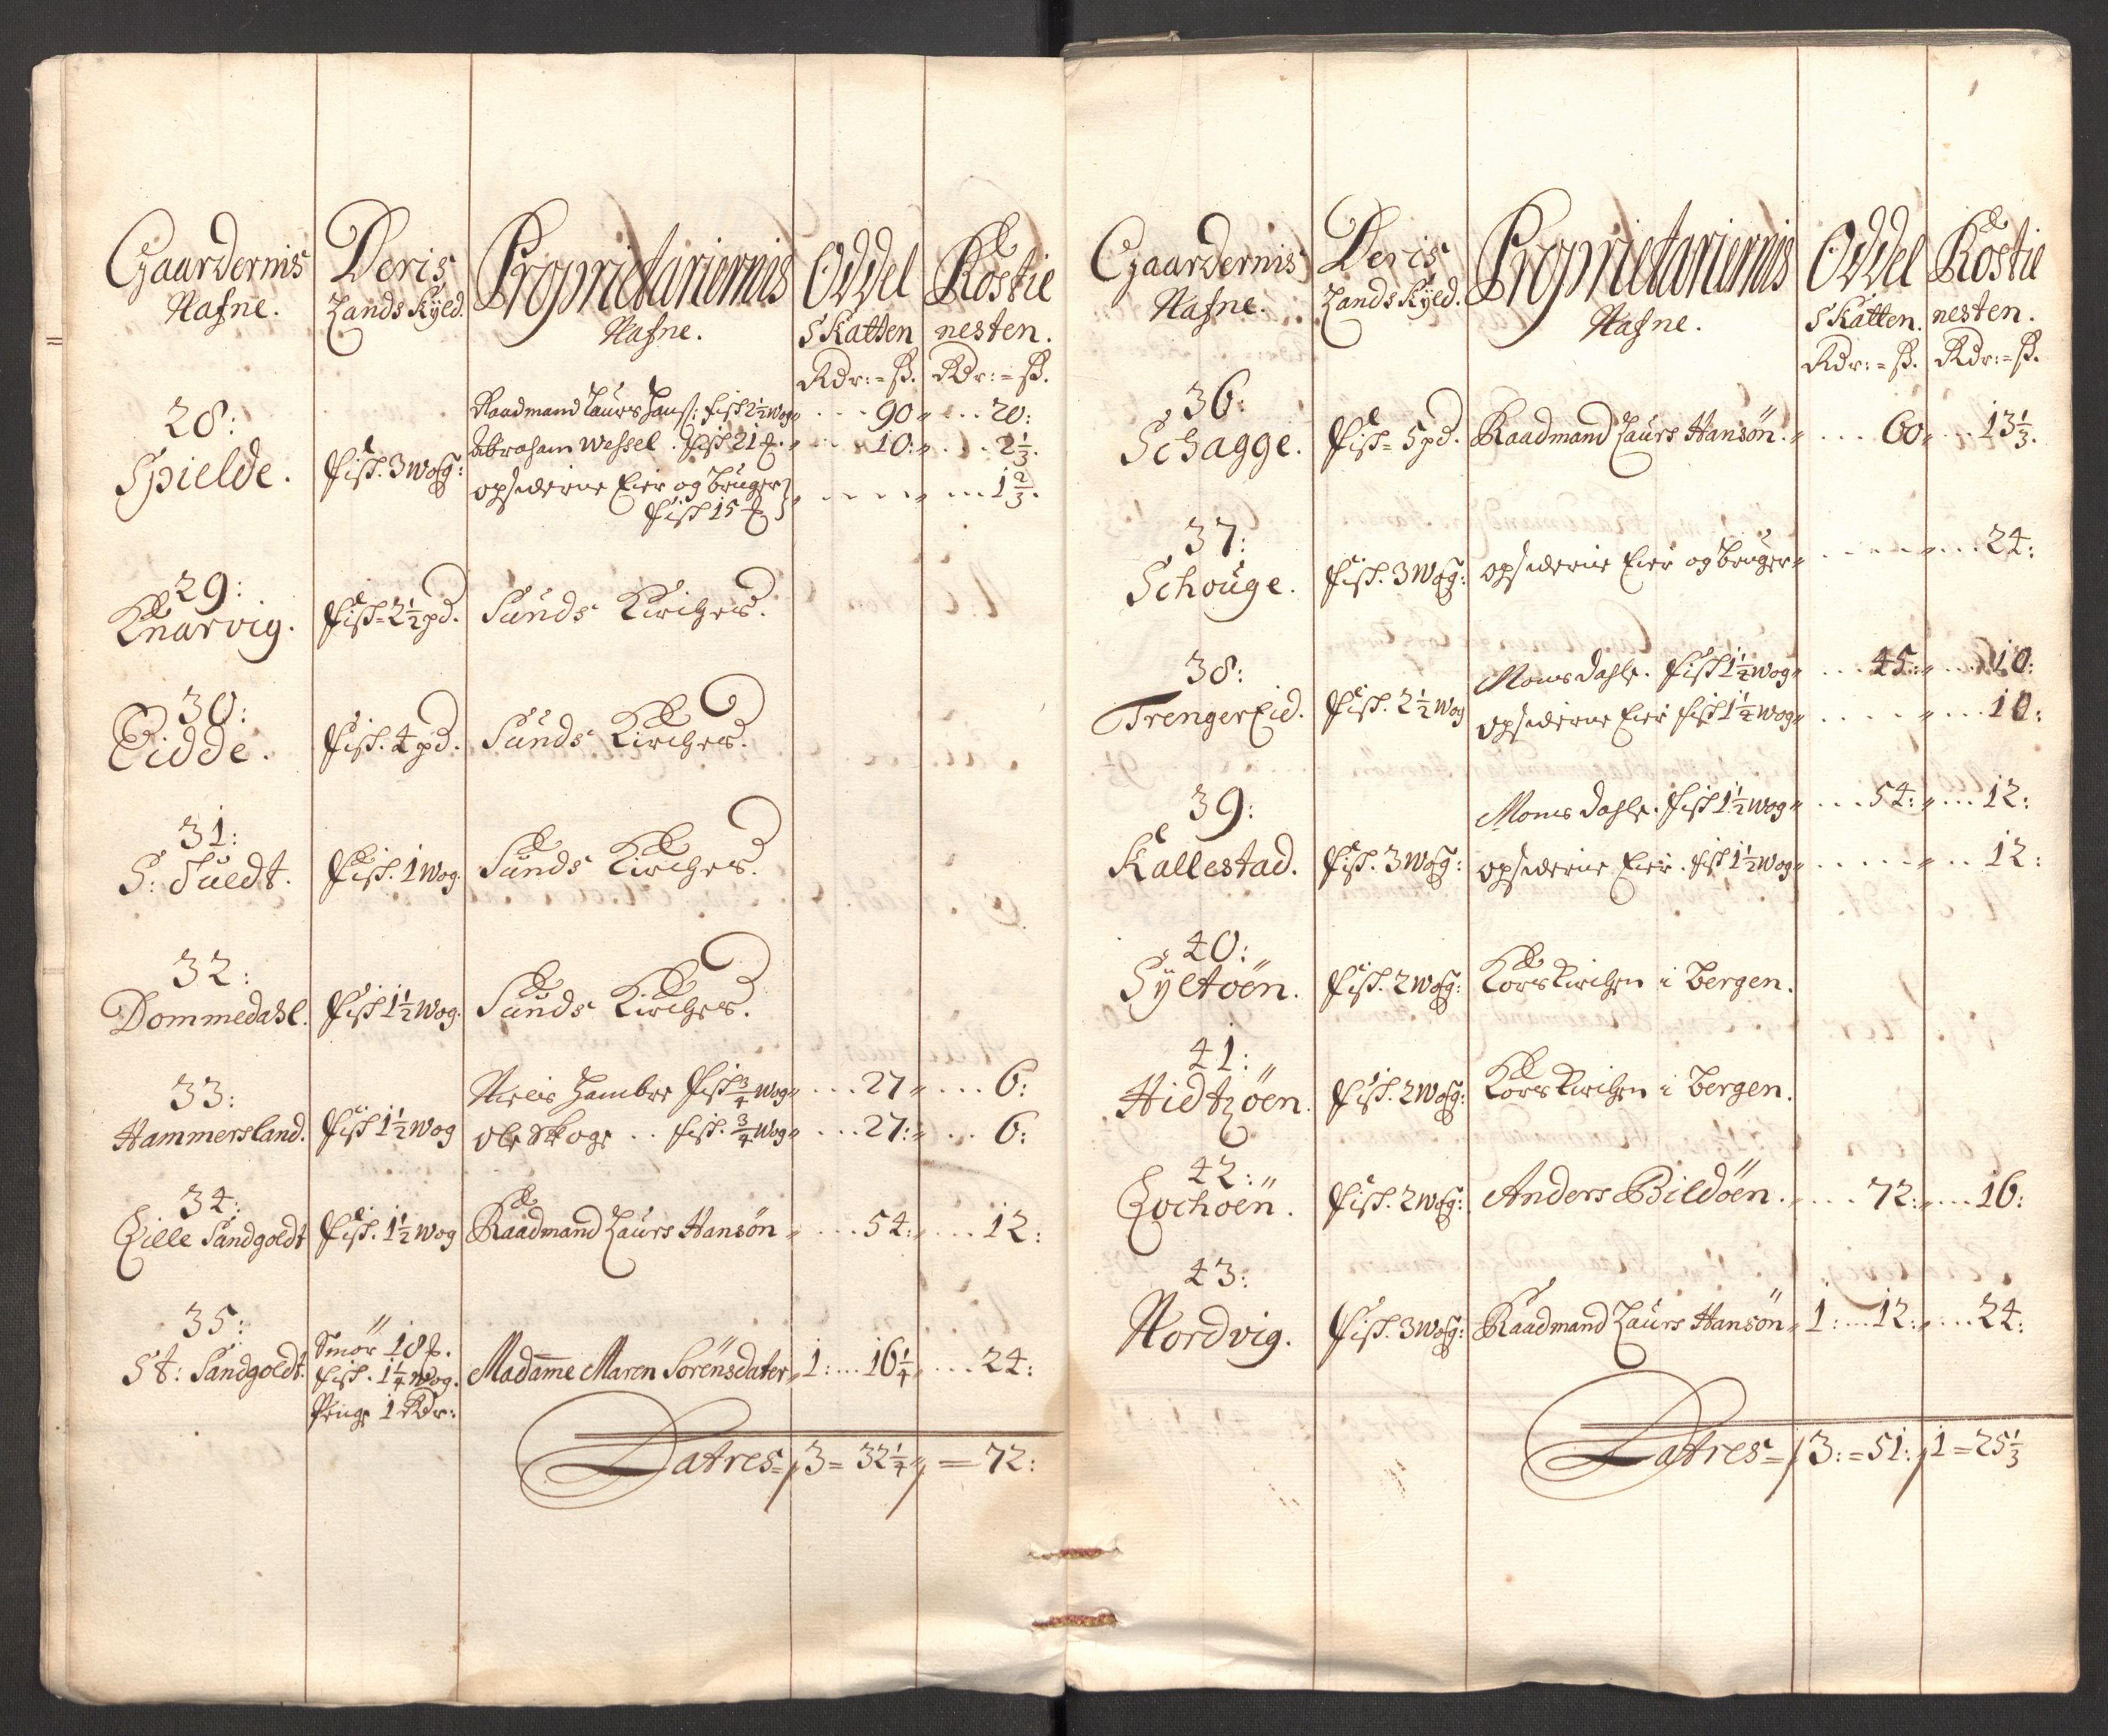 Gaardernis Deris Proprietariernis Oddel Rostie
Nafne. Landskÿld. Nafne. Skatten nesten.
Rdr: = ß. Rdr: = ß.
28: Raadmand Laurs Hanß: fisk 2½ wog " ... 90 " ... 20:
Abraham Wessel . fisk 21 " .. 10: " .. 2⅓.
Spielde. fisk. 3 wog: opsiderne Eier og bruger
fisk 15 " .... " ... 1⅔.
29:
Knarvig. fisk = 2½ pd. Sunds Kirches.
30:
Eidde. fisk. 4 pd. Sunds Kirches.
31:
S: Tueldt. fisk. 1 wog. Sunds Kirches.
32:
Dommedahl. fisk 1½ wog. Sunds Kirches.
33: Niels Hambre fisk ¾ wog " ... 27 " ... 6:
Hammersland. fisk 1½ wog Ole Skoge .. fisk. ¾ wog " ... 27: " ... 6:
34:
Lille Sandgoldt fisk. 1½ wog Raadmand Laurs Hansön " ... 54: " ... 12:
35: Smör 18
St: Sandgoldt. fisk. 1¼ wog. Madame Maren Sörensdater " 1: ... 16¼ " ... 24:
Penge 1 Rdr:
Latres = 3 = 32¼ " = 72:
Gaardernis Deris Proprietariernis Oddel Rostie
Nafne. Landskÿld. Nafne. Skatten. nesten.
Rdr: = ß. Rdr: = ß.
36:
Schagge. fisk = 5 pd. Raadmand Laurs Hansön. " ... 60 " ... 13⅓.
37:
Schouge. fisk. 3 wog: opsiderne Eier og bruger " .... " ... 24:
38: Mons Dahle. fisk 1¼ wog " ... 45: " ... 10:
Trengereid. fisk. 2½ wog opsiderne Eier fisk 1¼ wog " .... " ... 10:
39: Mons Dahle. fisk 1½ wog " ... 54: " ... 12:
Kallestad. fisk. 3 wog: opsiderne Eier. fisk 1½ wog " ..... " .. 12:
40:
Sÿltöen. fisk. 2 wog: Korskirchen i Bergen.
41:
Hidtzöen. fisk. 2 wog: Korskirchen i Bergen.
42:
Lochöen. fisk. 2 wog: Anders Bildöen. " ... 72: " ... 16:
43:
Nordvig. fisk. 3 wog: Raadmand Laurs Hansön " 1: ... 12: " ... 24:
Latres = 3: = 51: 1 = 25⅓